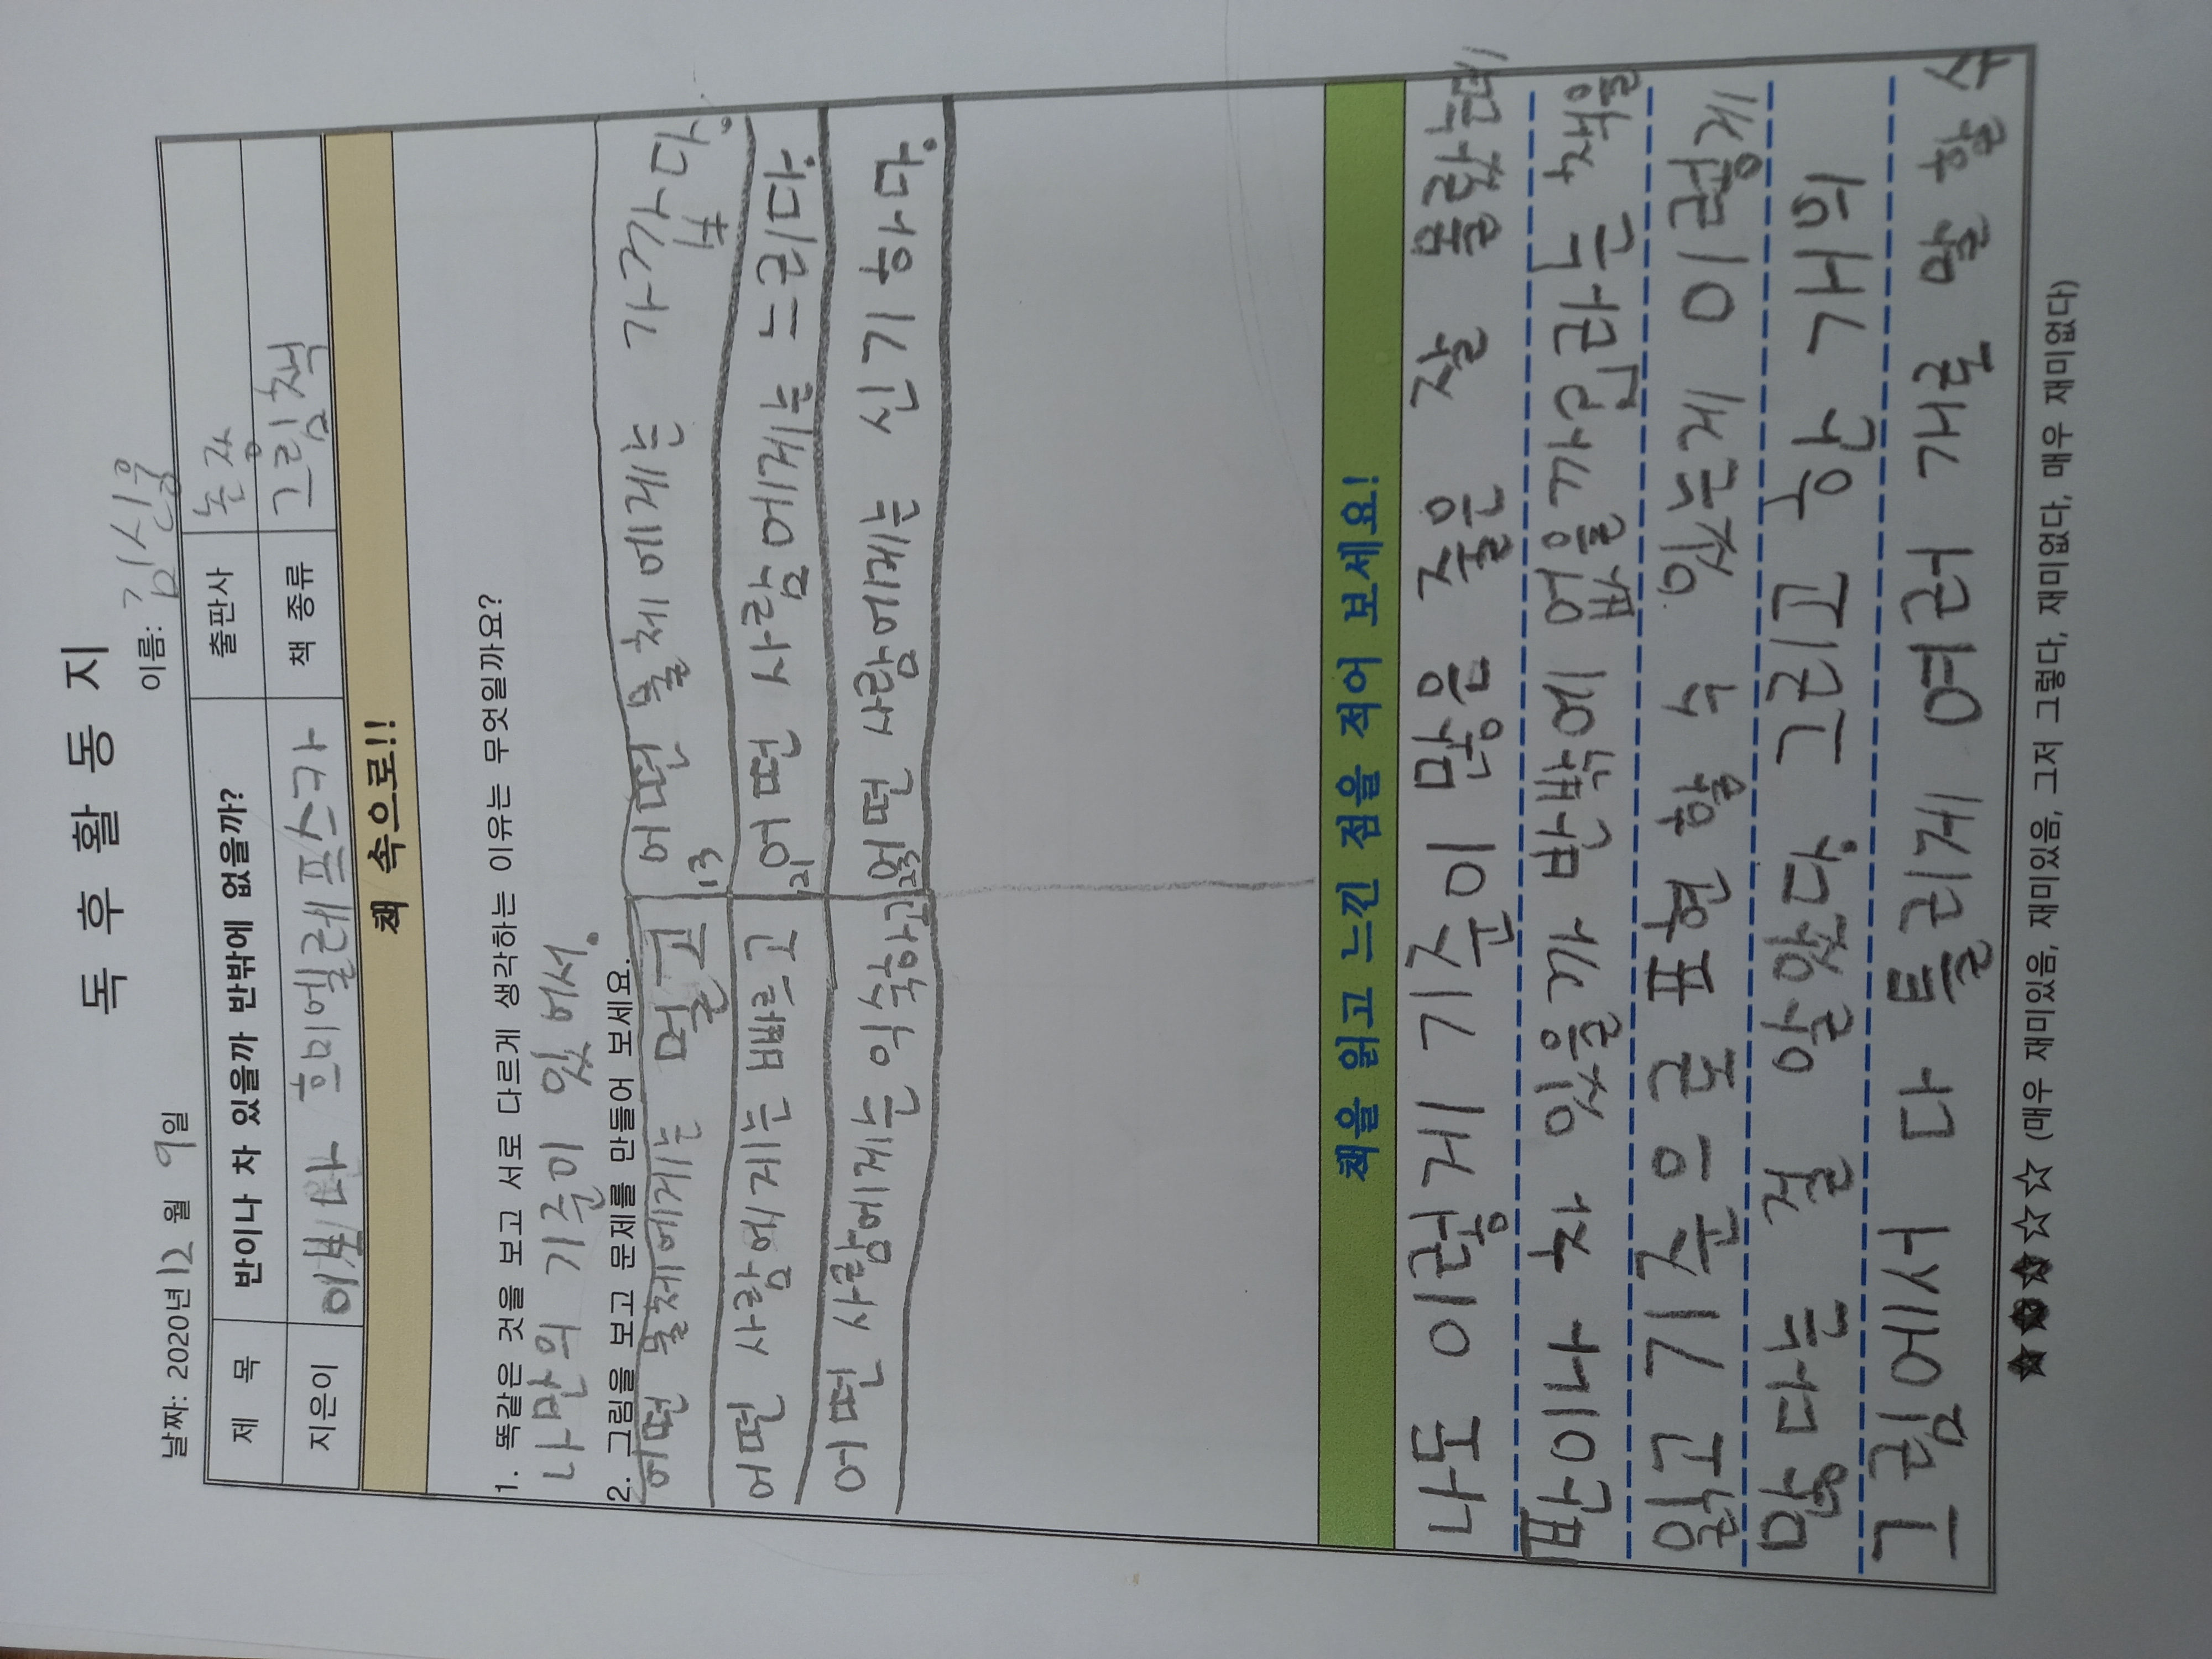 독 후 활 동 지
날짜: 2020년 12월 9일 이름: 김신율
제 목 반이나 차 있을까 반밖에 없을까? 출판사 논장
지은이 이보나 흐미엘레프스카 책 종류 그림책
책 속으로!!
1. 똑같은 것을 보고 서로 다르게 생각하는 이유는 무엇일까요?
나만의 기준이 있어서.
2. 그림을 보고 문제를 만들어 보세요.
어떤 물체에게는 멀고 어떤 물체에게는 가깝다.
13
어떤 사람에게는 빠르고 어떤 사람에게는 느리다.
21
어떤 사람에게는 익숙하고 어떤 사람에게는 신기하다.
23
책을 읽고 느낀 점을 적어 보세요!
나도 이렇게 기준이 많은 줄은 잘 몰랐는데
반이나 차 있을까 반밖에 없을까?라는 책을
읽고 기준으로 표현할 수 있는게 이렇게
많다는 걸 알았다. 그리고 한 개의
그림에서 다 틀리게 여러 개로 말 할 수
★★★☆☆ (매우 재미있음, 재미있음, 그저 그렇다, 재미없다, 매우 재미없다)